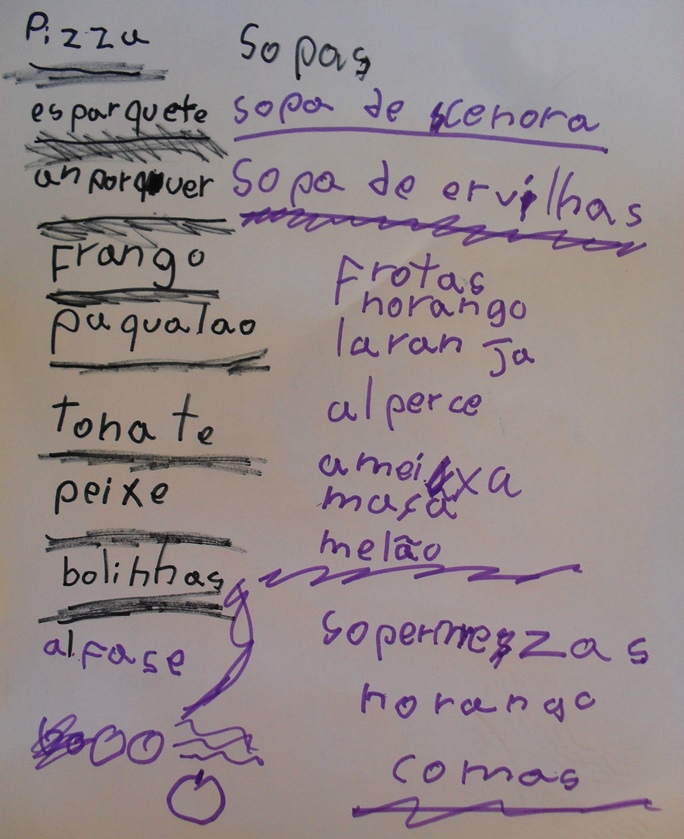 Pizza
esparquete
anporquer
Frango
paqualao
tonate
peixe
bolinhas
alfase
Sopas
sopa de cenora
Sopa de ervilhas
Frotas
norango
laranja
alperce
ameixa
maçã
melão
sopermezas
norango
comas